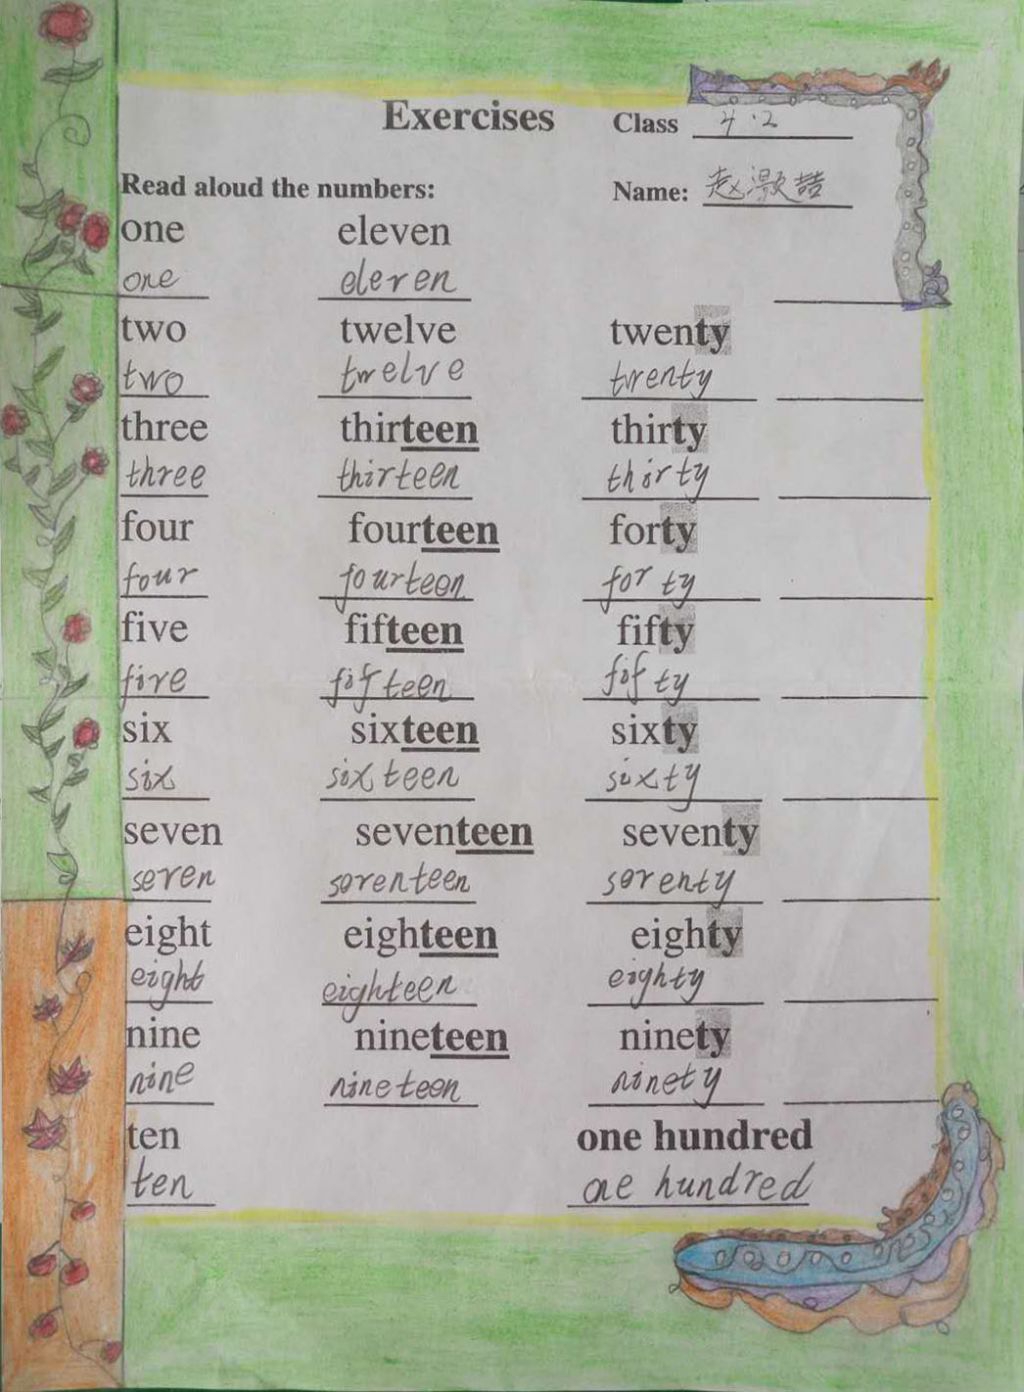 Exercises Class 4.2
Read aloud the numbers: Name: 赵
one eleven
one eleven
two twelve twenty
two twelve twenty
three thirteen thirty
three thirteen thirty
four fourteen forty
four fourteen forty
five fifteen fifty
five fifteen fifty
six sixteen sixty
six sixteen sixty
seven seventeen seventy
seven seventeen seventy
eight eighteen eighty
eight eighteen eighty
nine nineteen ninety
nine nineteen ninety
ten one hundred
ten one hundred